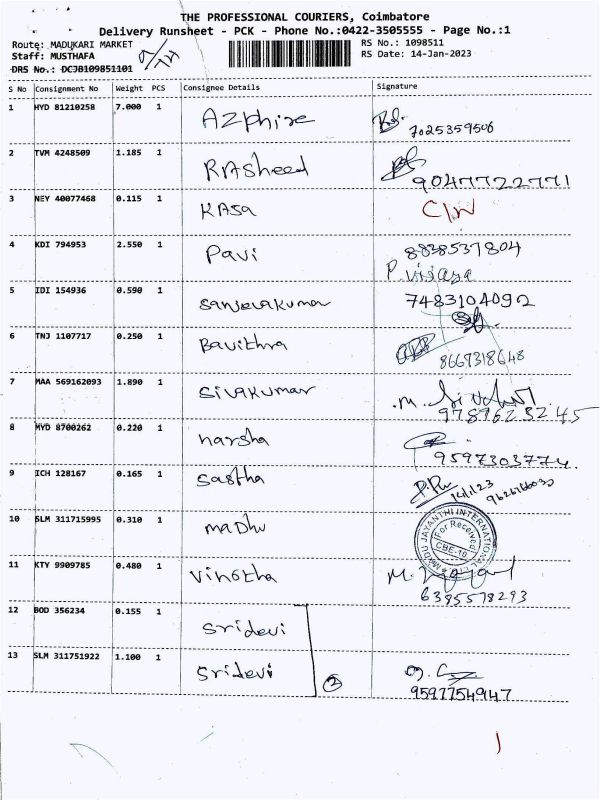 THE PROFESSIONAL COURIERS, Coimbatore
Delivery Runsheet - PCK - Phone No.:0422-3505555 - Page No.:1
Route: MADUKARI MARKET
RS No.: 1098511
Staff: MUSTHAFA
RS Date: 14-Jan-2023
DRS No.: DCJB109851101
S No Consignment No Weight PCS Consignee Details Signature
1 HYD 81210258 7.000 1 AZphire 7025359506
2 TVM 4248509 1.185 1 RASheed 90477722771
3 NEY 40077468 0.115 1 KASa C/N
4 KDI 794953 2.550 1 Pavi 8838537804
P. vijaya
5 IDI 154936 0.590 1 Sanjeevakumar 7483104092
6 TNJ 1107717 0.250 1 Bavithra 8667318648
7 MAA 569162093 1.890 1 Sivakumar M.
9789623245
8 HYD 8700262 0.220 1 harsha 9597303774
9 ICH 128167 0.165 1 Sastha 14/1/23
10 SLM 311715995 0.310 1 maDhu
MADU JAYANTHI INTERNATIONAL
For Received
CBE-10
11 KTY 9909785 0.480 1 Vinotha M.
6395578293
12 BOD 356234 0.155 1 Sridevi
13 SLM 311751922 1.100 1 Sridevi 2
9597754947